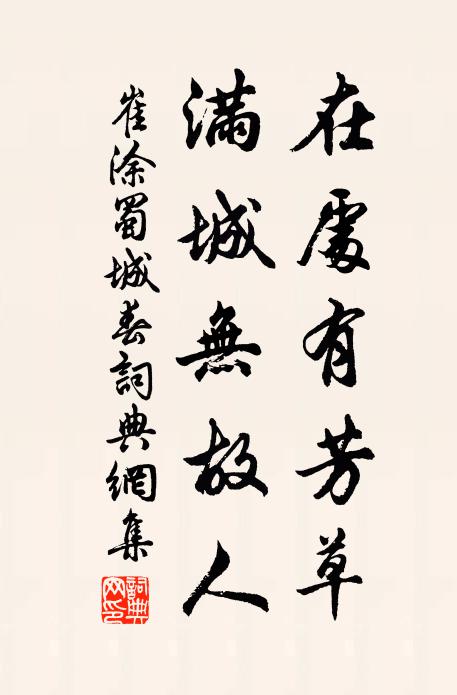 在處有芳草
滿城無故人
崔涂蜀城春詞典網集
詞典網印